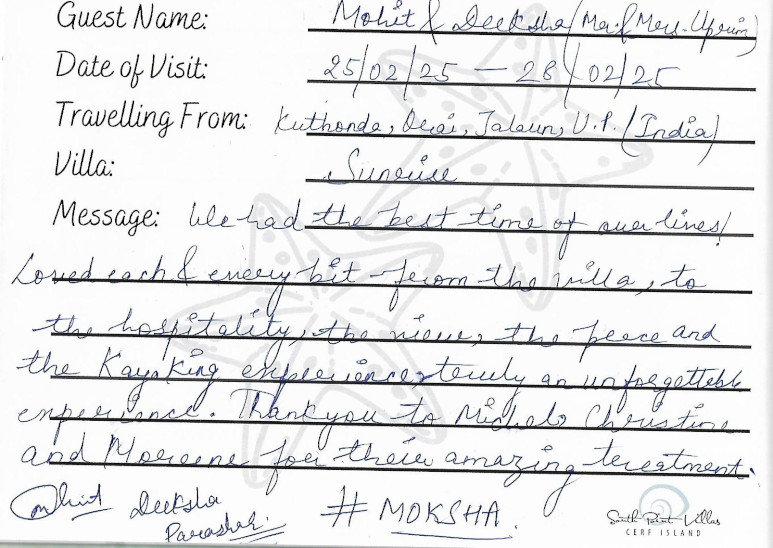 Guest Name: Mohit & Deeksha (Mr. & Mrs. Uprin)
Date of Visit: 25/02/25 — 28/02/25
Travelling From: Kuthonda, Orai, Jalaun, U.P. (India)
Villa: Sunrise
Message: We had the best time of our lives!
Loved each & every bit - from the villa, to
the hospitality, the views, the peace and
the Kayaking experience, truly an unforgettable
experience. Thank you to Michelo Christine
and Moreene for their amazing treatment.
Mohit Deeksha # MOKSHA
Parashar.
South Point Villas
CERF ISLAND